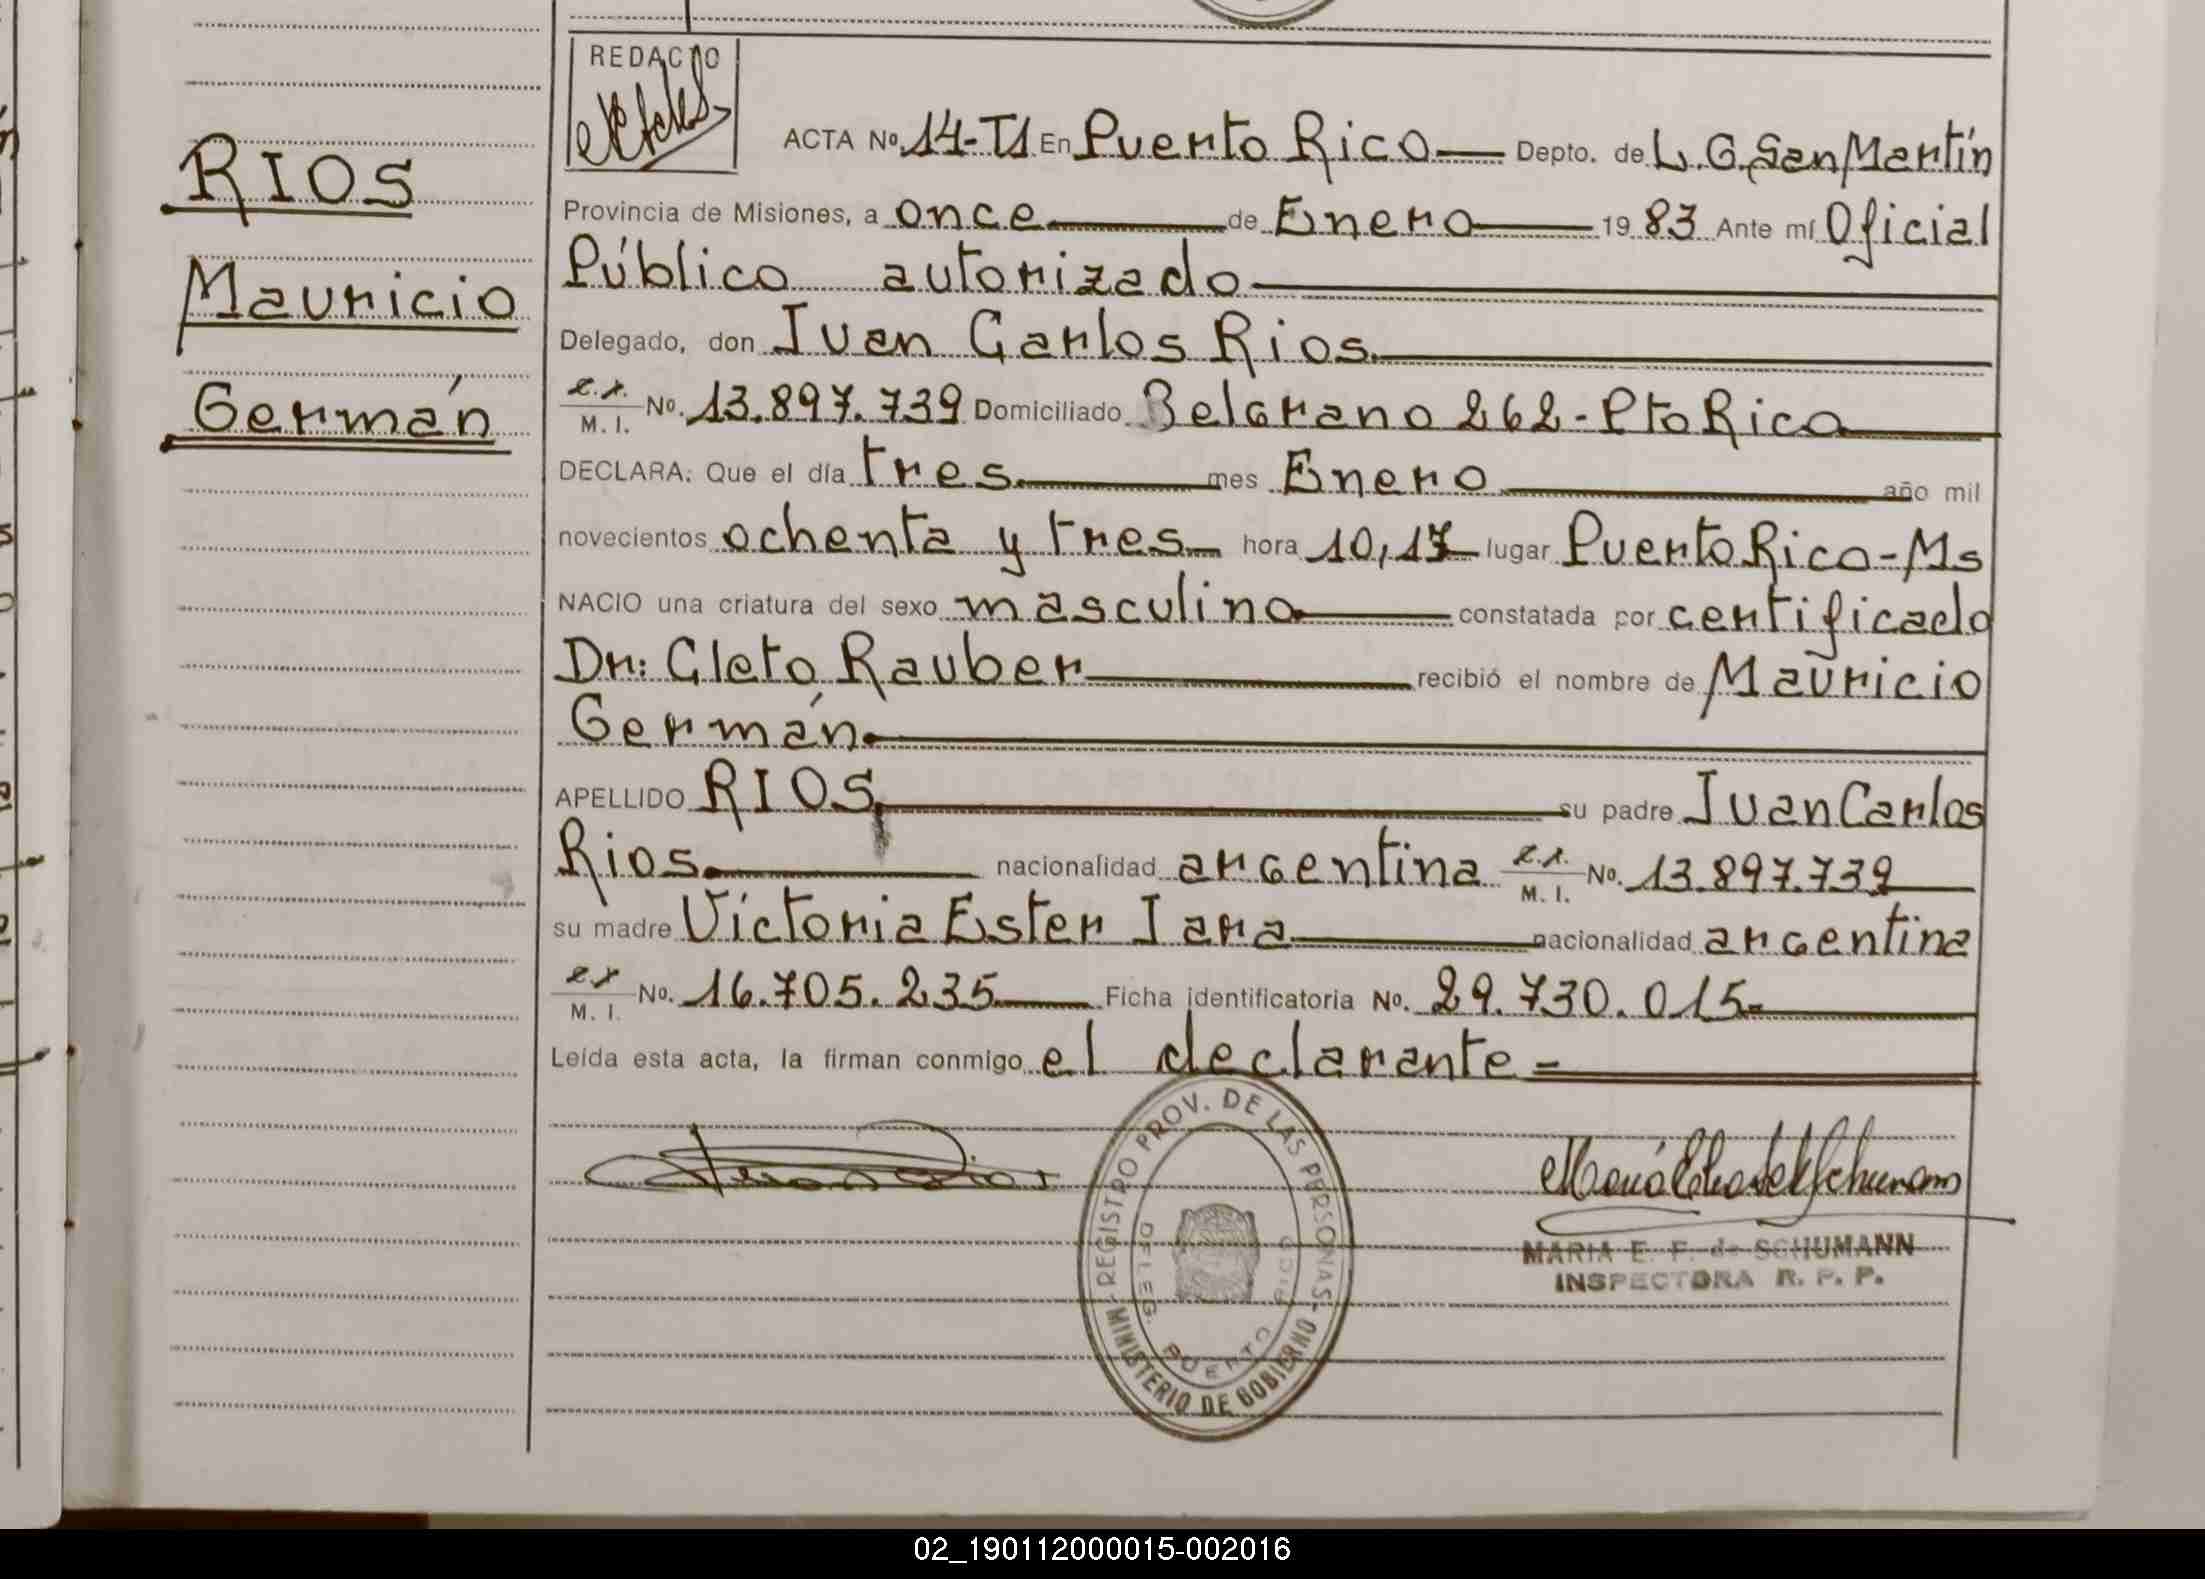 REDACTO
RIOS
Mauricio
Germán
ACTA No. 14-T1 En Puerto Rico Depto. de L. G. San Martín
Provincia de Misiones, a once de Enero 1983 Ante mí Oficial
Público autorizado
Delegado, don Juan Carlos Rios
M. I. No. 13.897.739 Domiciliado Belgrano 262-Pto Rico
DECLARA: Que el día tres mes Enero año mil
novecientos ochenta y tres hora 10,17 lugar Puerto Rico-Ms
NACIO una criatura del sexo masculino constatada por certificado
Dr: Cleto Rauber recibió el nombre de Mauricio
Germán
APELLIDO RIOS su padre Juan Carlos
Rios nacionalidad argentina M. I. No. 13.897.739
su madre Victoria Ester Jara nacionalidad argentina
M. I. No. 16.705.235 Ficha identificatoria No. 29.730.015-
Leída esta acta, la firman conmigo el declarante-
REGISTRO PROV. DE LAS PERSONAS
MINISTERIO DE GOBIERNO
DELEG. PUERTO RICO
MARIA E. F. de SCHUMANN
INSPECTORA R. P. P.
02_190112000015-002016